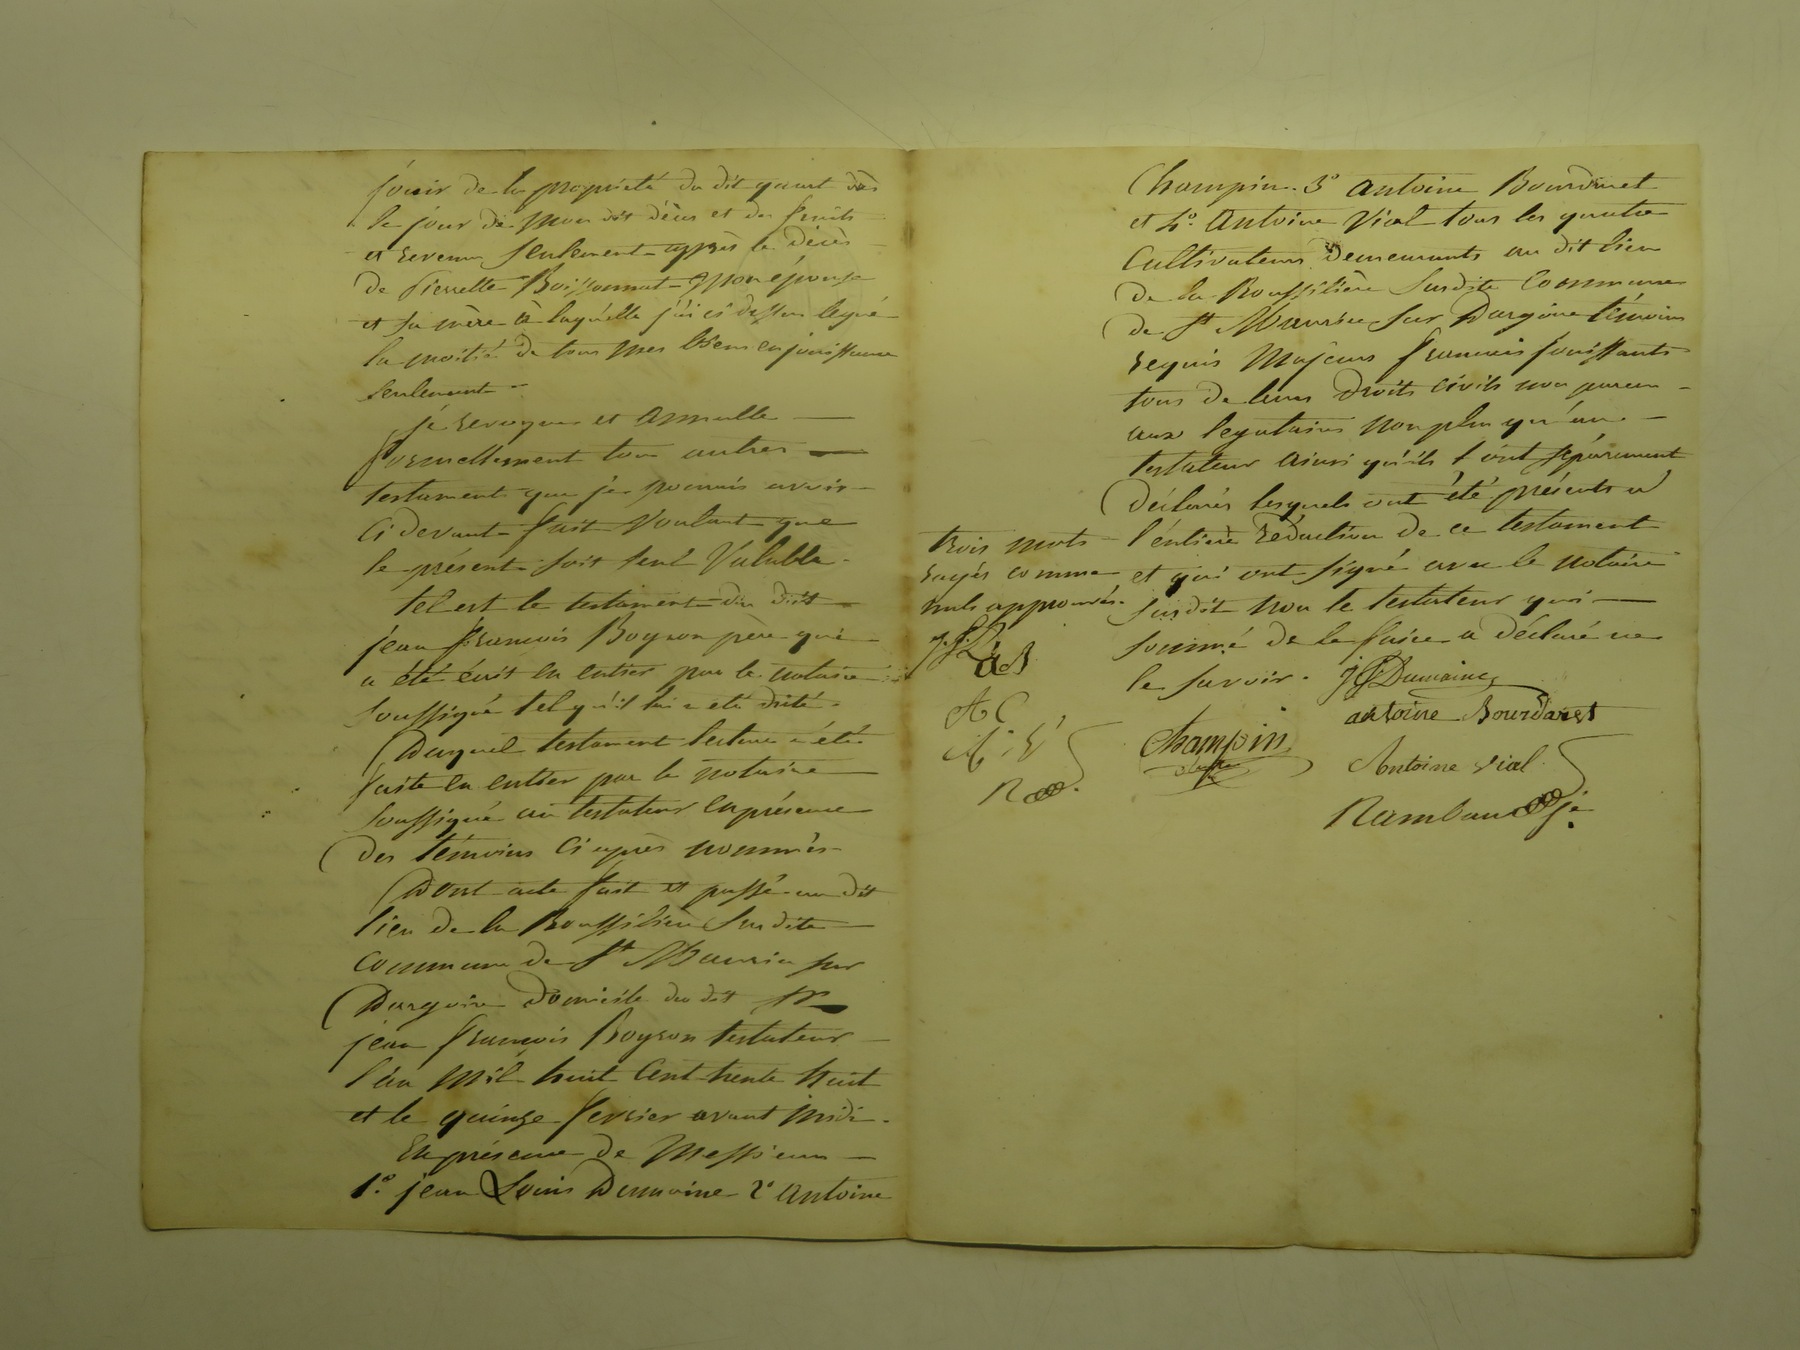 jouir de la propriété du dit quart dès
le jour de mon dit décès et des fruits
et revenus seulement après le décès
de Pierrette Boissonnat mon épouse
et sa mère à laquélle j'ai ci dessus legué
la moitié de tous mes biens en jouissance
seulement
je revoque et annulle
formellement tous autres
testaments que je pourrais avoir
ci devant fait voulant que
le présent soit seul valable.
tel est le testament du dit
jean françois Boyron père qui
a été écrit en entier par le notaire
soussigné tel qu'il lui a été dicté.
Duquel testament lecture a été
faite en entier par le notaire
soussigné au testateur en présence
des témoins ci après nommés
Dont acte fait et passé au dit
lieu de la Roussilière susdite
commune de St Maurice sur
Dargoire domicile du dit Sr
jean françois Boyron testateur
l'an mil huit cent trente huit
et le quinze fevrier avant midi.
En présence de Messieurs
1.° jean Louis Dumaine 2° antoine
Champin. 3° antoine Bourdaret
et 4° antoine Vial tous les quatre
cultivateurs demeurants au dit lieu
de la Roussilière susdite commune
de St Maurice sur Dargoire témoins
requis majeurs francais jouissants
tous de leurs droits civils non parens
aux legataires non plus qu'au
testateur ainsi qu'ils l'ont séparément
déclarés lesquels ont été présents a
l'entière rédaction de ce testament
et qui ont signé avec le notaire
susdit non le testateur qui
sommé de le faire a déclaré ne
le savoir.
trois mots
rayés comme
nuls approuvés.
J.L.D
aB
AC
A. V
R
JLDumaine
antoine Bourdaret
Champin
Antoine vial
Rambaud je